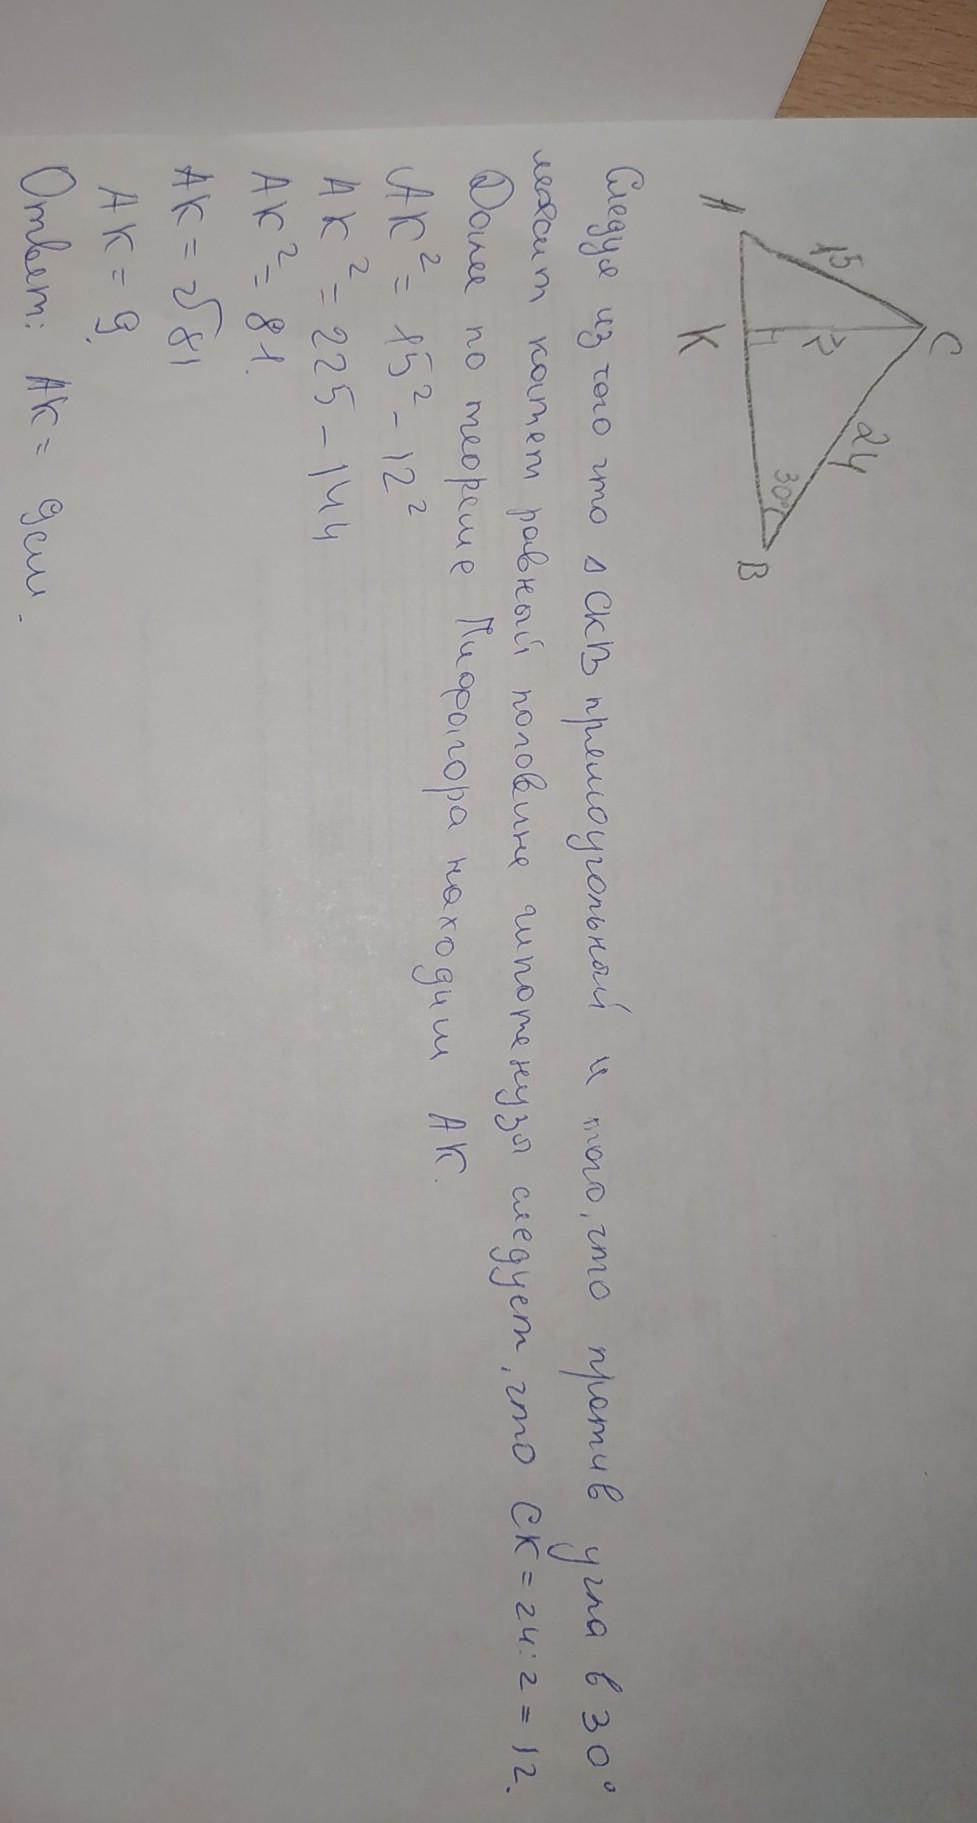 C
15
24
?
30°
A
K
B
Следуя из того что △ СКВ прямоугольный и того, что против угла в 30°
лежит катет равный половине гипотенузы следует, что СК = 24:2 = 12.
Далее по теореме Пифагора находим АК.
АК² = 15² - 12²
АК² = 225 - 144
АК² = 81.
АК = √81
АК = 9.
Ответ: АК = 9см.